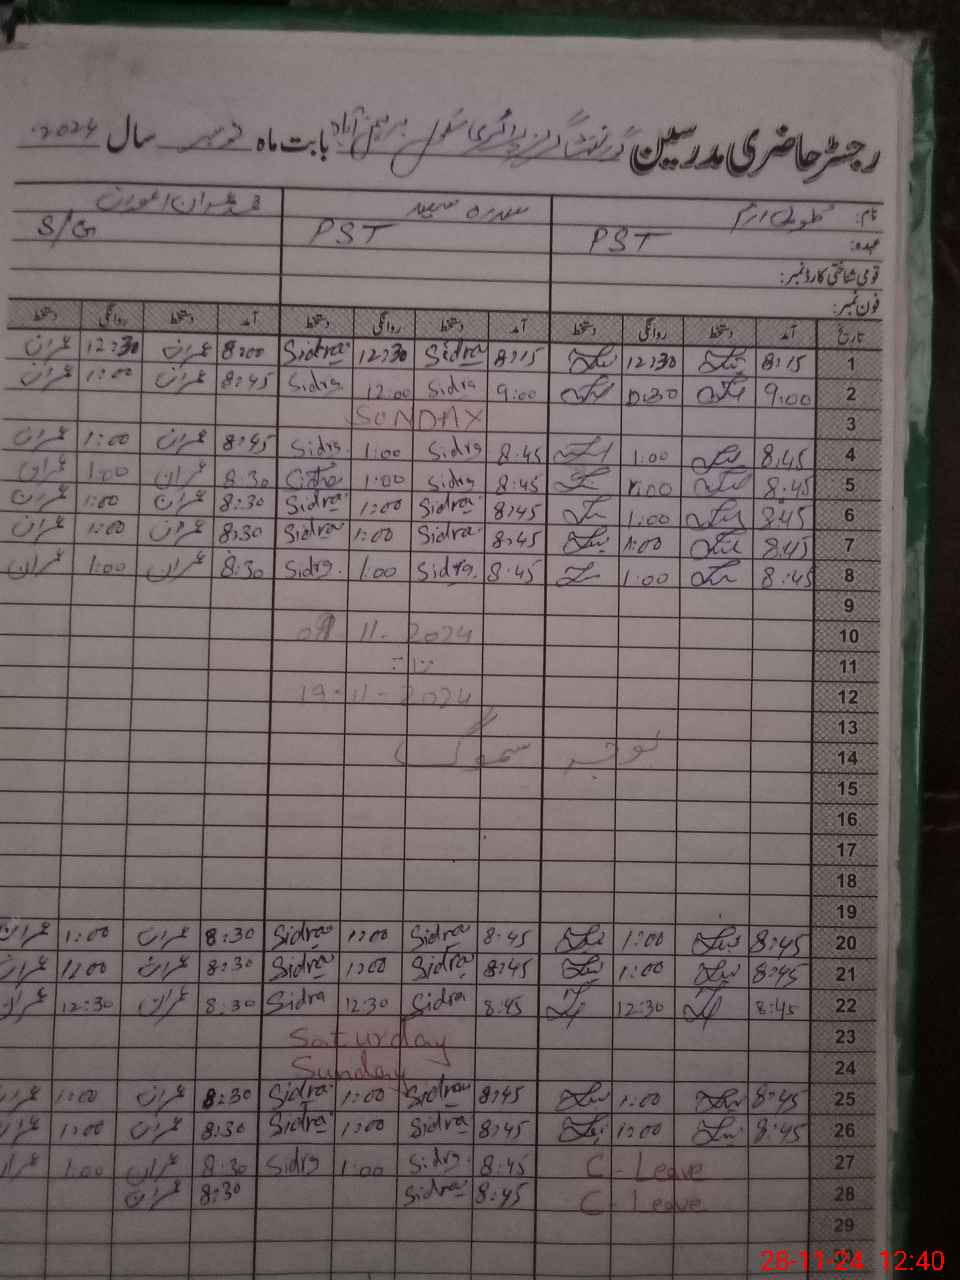 رجسٹر حاضری مدرسین گورنمنٹ گرلز پرائمری سکول بابت ماہ نومبر سال 2024
نام: سدرہ سعید محمد عمران اعوان
عہدہ: PST PST S/G
قومی شناختی کارڈ نمبر:
فون نمبر:
تاریخ آمد دستخط روانگی دستخط آمد دستخط روانگی دستخط آمد دستخط روانگی دستخط
1 8:15 12:30 8:15 Sidra 12:30 Sidra 8:00 عمران 12:30 عمران
2 9:00 9:00 Sidra 12:00 Sidra 8:45 عمران 1:00 عمران
3 SUNDAY
4 8:45 1:00 8:45 Sidra 1:00 Sidra 8:45 عمران 1:00 عمران
5 8:45 1:00 8:45 Sidra 1:00 8:30 عمران 1:00 عمران
6 8:45 1:00 8:45 Sidra 1:00 Sidra 8:30 عمران 1:00 عمران
7 8:45 1:00 8:45 Sidra 1:00 Sidra 8:30 عمران 1:00 عمران
8 8:45 1:00 8:45 Sidra 1:00 Sidra 8:30 عمران 1:00 عمران
9
10 09-11-2024
11 تا
12 19-11-2024
13
14 بوجہ سموگ
15
16
17
18
19
20 8:45 1:00 8:45 Sidra 1:00 Sidra 8:30 عمران 1:00 عمران
21 8:45 1:00 8:45 Sidra 1:00 Sidra 8:30 عمران 1:00 عمران
22 8:45 12:30 8:45 Sidra 12:30 Sidra 8:30 عمران 12:30 عمران
23 Saturday
24 Sunday
25 8:45 1:00 8:45 Sidra 1:00 Sidra 8:30 عمران 1:00 عمران
26 8:45 1:00 8:45 Sidra 1:00 Sidra 8:30 عمران 1:00 عمران
27 C-Leave 8:45 Sidra 1:00 Sidra 8:30 عمران 1:00 عمران
28 C-Leave 8:45 Sidra 8:30 عمران
29
28-11-24 12:40